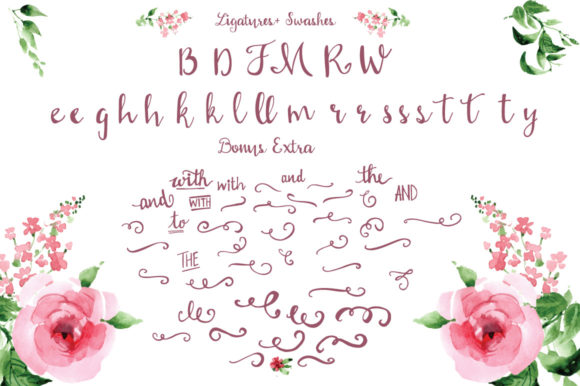 Ligatures+ Swashes
B D F M R W
e e g h h k k l ll m r r s s s t tt t y
Bonus Extra
with with and the
and WITH AND
to
THE